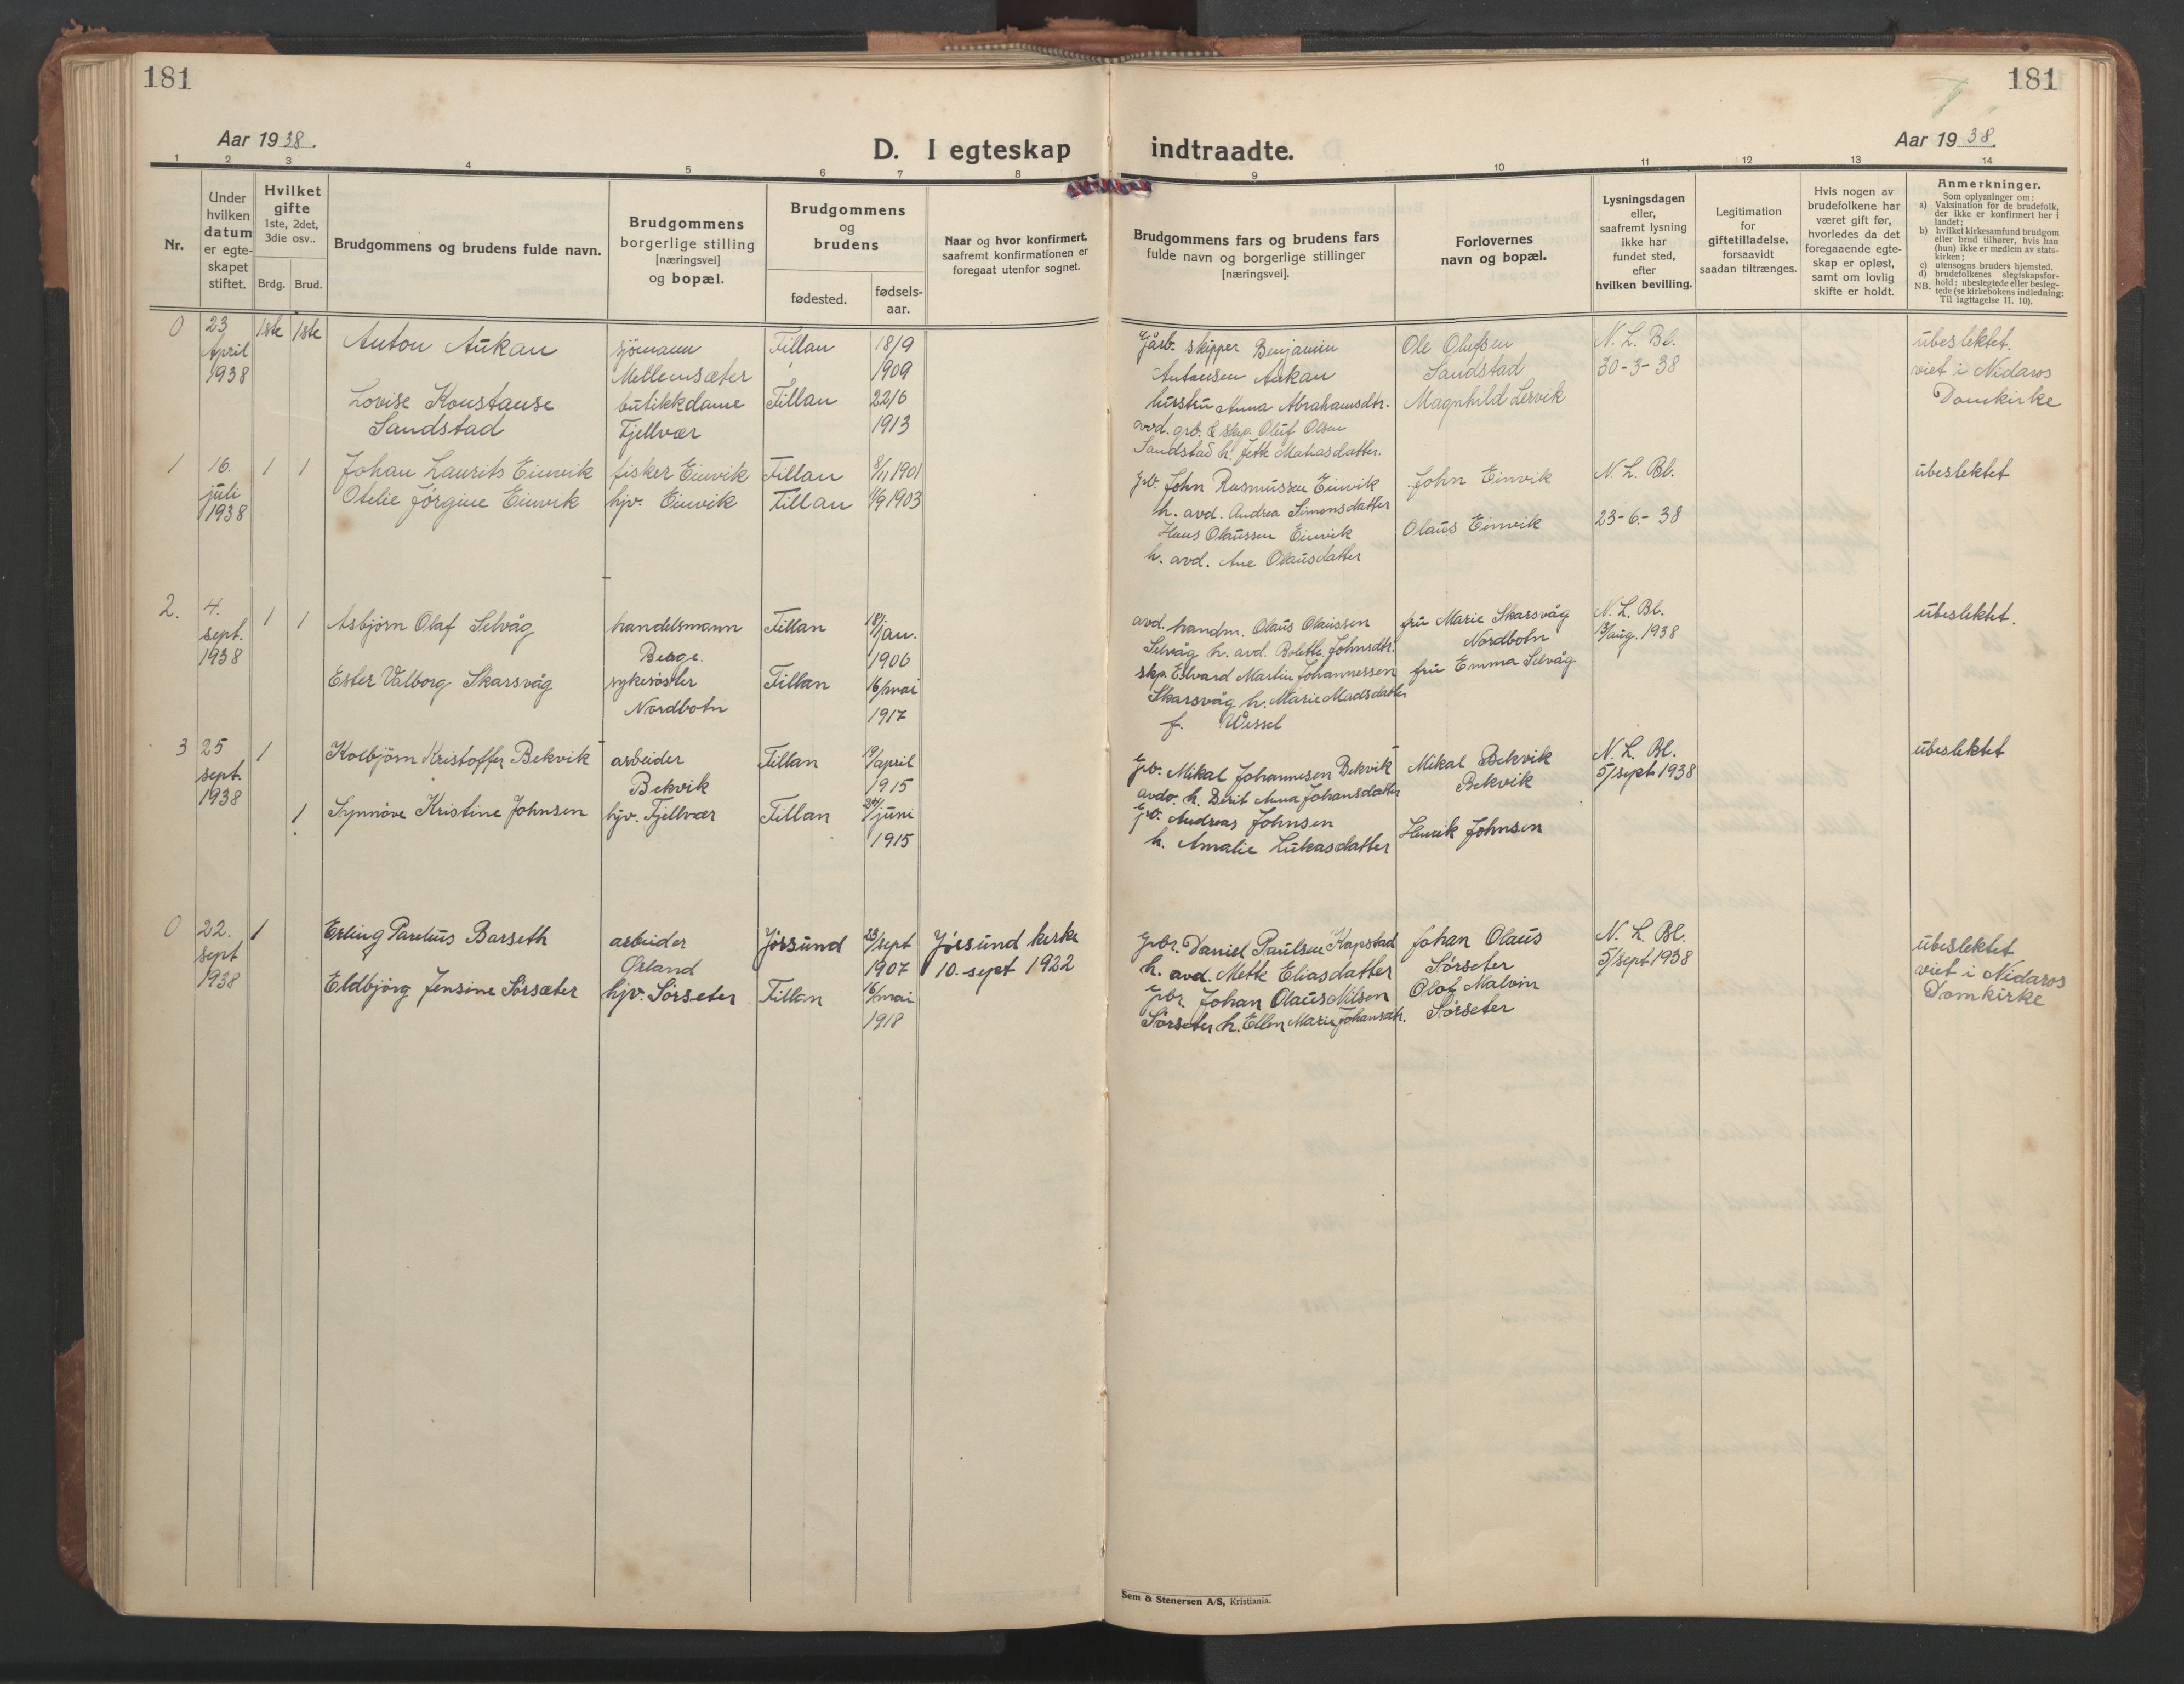 181
181
Aar 1938.
D. I egteskap
indtraadte.
Aar 1938.
1 2 3 4 5 6 7 8 9 10 11 12 13 14
Nr.
Under
hvilken
datum
er egte-
skapet
stiftet.
Hvilket
gifte
1ste, 2det,
3die osv..
Brdg. Brud.
Brudgommens og brudens fulde navn.
Brudgommens
borgerlige stilling
[næringsvei]
og bopæl.
Brudgommens
og
brudens
fødested.
fødsels-
aar.
Naar og hvor konfirmert,
saafremt konfirmationen er
foregaat utenfor sognet.
Brudgommens fars og brudens fars
fulde navn og borgerlige stillinger
[næringsvei].
Forlovernes
navn og bopæl.
Lysningsdagen
eller,
saafremt lysning
ikke har
fundet sted,
efter
hvilken bevilling.
Legitimation
for
giftetilladelse,
forsaavidt
saadan tiltrænges.
Hvis nogen av
brudefolkene har
været gift før,
hvorledes da det
foregaaende egte-
skap er opløst,
samt om lovlig
skifte er holdt.
Anmerkninger.
Som oplysninger om:
a) Vaksination for de brudefolk,
der ikke er konfirmert her i
landet;
b) hvilket kirkesamfund brudgom
eller brud tilhører, hvis han
(hun) ikke er medlem av stats-
kirken;
c) utensogns bruders hjemsted.
d) brudefolkenes slegtskapsfor-
hold: ubeslegtede eller besleg-
NB. tede (se kirkebokens indledning:
Til iagttagelse II. 10).
0
23
April
1938
1ste 1ste
Anton Aukan
Lovise Konstanse
Sandstad
sjömann
Mellemsæter
butikkdame
Fjellvær
Fillan
Fillan
18/9
1909
22/6
1913
Gårb. skipper Benjamin
Antonsen Aukan
hustru Anna Abrahamsdtr.
avd. grb. & skip. Oluf Olsen
Sandstad h. Jette Matiasdatter.
Ole Olufsen
Sandstad
Magnhild Lervik
N. L. Bl.
30-3-38
ubeslektet.
viet i Nidaros
Domkirke
1
16.
juli
1938
1 1
Johan Laurits Einvik
Otelie Jørgine Einvik
fisker Einvik
hjv. Einvik
Fillan
Fillan
8/11 1901
1/9 1903
grb. John Rasmussen Einvik
h. avd. Andrea Simonsdatter
Hans Olaussen Einvik
h. avd. Ane Olausdatter
John Einvik
Olaus Einvik
N. L. Bl.
23-6-38
ubeslektet
2.
4.
sept.
1938
1 1
Asbjørn Olaf Selvåg
Ester Valborg Skarsvåg
handelsmann
Berge.
sykesöster
Nordbotn
Fillan
Fillan
18/jan.
1906
16/mai
1917
avd. handm. Olaus Olaussen
Selvåg h. avd. Bolette Johnsdtr.
skp. Edvard Martin Johannessen
Skarsvåg h. Marie Madsdatter
f. Wessel
fru Marie Skarsvåg
Nordbotn
fru Emma Selvåg
N. L. Bl.
13/aug. 1938
ubeslektet.
3
25
sept.
1938
1
1
Kolbjörn Kristoffer Bekvik
Synnöve Kristine Johnsen
arbeider
Bekvik
hjv. Fjellvær
Fillan
Fillan
19/april
1915
24/juni
1915
grb. Mikal Johannesen Bekvik
avdø. h. Berit Anna Johansdatter
grb. Andreas Johnsen
h. Amalie Lukasdatter
Mikal Bekvik
Bekvik
Henrik Johnsen
N. L. Bl.
5/sept 1938
ubeslektet
0
22.
sept
1938
1
Erling Parelius Barseth
Eldbjörg Jensine Sörsæter
arbeider
Ørland
hjv. Sörseter
Jössund
Fillan
23/sept
1907
16/mai
1918
Jössund kirke
10. sept 1922
gbr. Daniel Paulsen Kapstad
h. avd. Mette Eliasdatter
gbr. Johan Olaus Nilsen
Sörseter h. Ellen Marie Johansdtr.
Johan Olaus
Sörseter
Olaf Malvin
Sörseter
N. L. Bl.
5/sept 1938
ubeslektet
viet i Nidaros
Domkirke
Sem & Stenersen A/S, Kristiania.